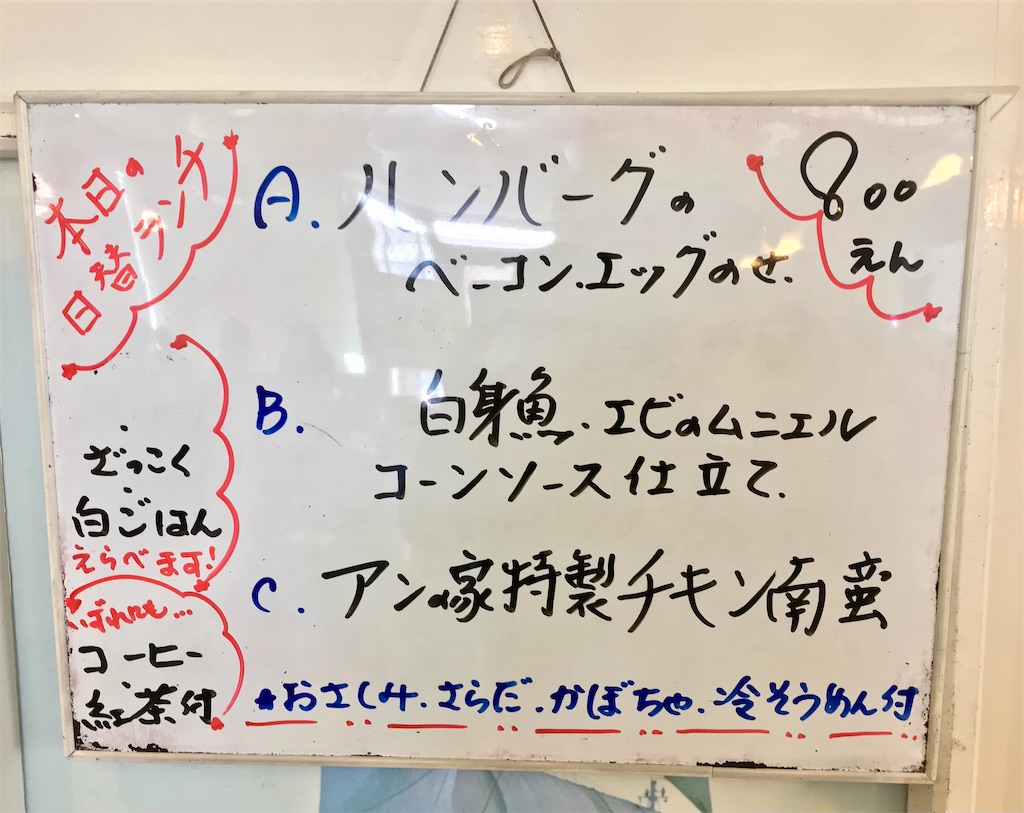 本日の
日替ランチ
A. ハンバーグの
ベーコン.エッグのせ.
800
えん
B. 白身魚.エビのムニエル
コーンソース仕立て.
C. アンの家特製チキン南蛮
ざっこく
白ごはん
えらべます!
どれでも...
コーヒー
紅茶付
★おさしみ.さらだ.かぼちゃ.冷そうめん付